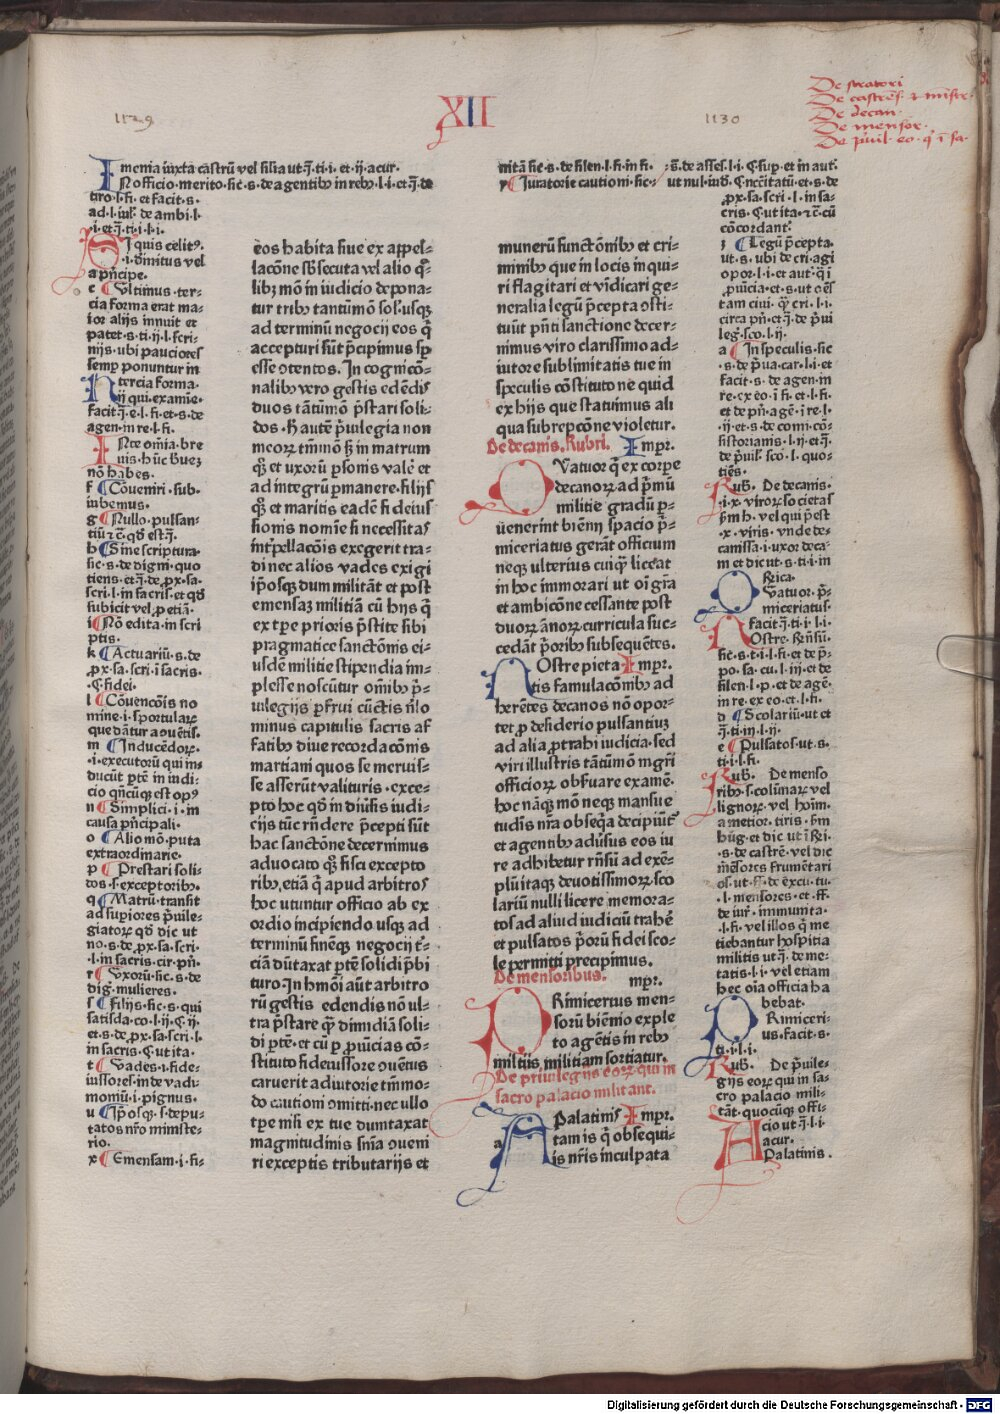 XII
1129
1130
De stratori
De castrens. & mistr.
De decan.
De mensor.
De priuil. eo. q̄ ī sa.
Imenia iuxta castrū vel filia ut.q̄.ti.i. et.ij.acur.
In officio.merito.sic.s.de agentibꝰ in rebꝰ.l.i.et.q̄.de
tiro.l.fi.et facit.s.
ad.l.iul.de ambi.l.
i.et.q̄.ti.i.l.i.
Si quis celitꝰ.
.i.diuinitus vel
a prīcipe.
e Ultimus.ter-
cia forma erat ma-
ior alijs innuit et
patet.s.ti.ij.l.scri-
nijs.ubi pauciores
semꝑ ponuntur in
tercia forma.
ij qui.examīe.
facit.q̄.e.l.fi.et.s.de
agen.in re.l.fi.
Inte om̄ia.bre
uis.hūc breuez
nō habes.
f Cōueniri.sub-
iubemus.
g Nullo.pulsan-
tiū.et̄.qd̄ est.q̄.
h Sine scriptura.
sic.s.de digni.quo
tiens.et.q̄.de.ꝓx.sa.
scri.l.in sacris.et qd̄
subicit vel.ꝓ etiā.
i Nō edita.in scri
ptis.
k Actuariū.s.de
.ꝓx.sa.scri.i sacris.
.C.fidei.
l Cōuenciōis no
mine.i.sportularꝝ
que dātur a ꝯuētis.
m Inducēdorꝝ.
.i.executorū qui in-
ducūt ꝑtē in iudi-
cio qn̄cūqꝫ est opꝰ
n Simplici.i.in
causa prīcipali.
o Alio mō.puta
extraordinarie.
p Prestari soli-
dos.s.exceptoribꝰ.
q Matrū.transit
ad supiores p̄uile-
giatorꝝ qd̄ dic ut
no.s.de.ꝓx.sa.scri.
.l.in sacris.cir.pri.
r Uxorū.sic.s.de
dig.mulieres.
s Filijs.sic.s.qui
satisda.co.l.ij.C.ij.
et.s.de.ꝓx.sa.scri.l.
in sacris.C.ut ita.
t Uades.i.fide-
iussores.in de vadi-
moniū.i.pignus.
u Ip̄osqꝫ.s.depu-
tatos nr̄o ministe-
rio.
x Emensam.i.fi-
eos habita siue ex appel-
lacōne sb̄secuta vel alio qͦ-
libꝫ mō in iudicio depona-
tur tribꝰ tantūmō sol.usqꝫ
ad terminū negocij eos q̄
accepturi sūt p̄cipimus sp
esse ꝯtentos. In cognicō-
nalibꝰ vero gestis edēdis
duos tātūmō p̄stari soli-
dos.h̄ autē p̄uilegia non
meorꝝ tm̄mō sꝫ in matrum
qꝫ et uxorū ꝑsonis valēt et
ad integrū ꝑmanere.filijs
qꝫ et maritis eadē fideius-
sionis nomīe si necessitas
int̄ꝑellacōis exegerit tra-
di nec alios vades exigi
ip̄osqꝫ dum militāt et post
emensaꝫ militiā cū hijs q̄
ex tꝑe prioris p̄stite sibi
pragmatice sanctōnis ei-
usdē militie stipendia im-
plesse noscūtur om̄ibꝰ p̄-
uilegijs ꝑfrui cūctis nīlo
minus capitulis sacris af
fatibꝰ diue recordacōnis
martiani quos se meruis-
se asserūt valituris.exce-
pto hoc qd̄ in diūsis iudi-
cijs tūc rn̄dere p̄cepti sūt
hac sanctōne decernimus
aduocato qꝫ fisci excepto
ribꝰ,etiā q̄ apud arbitros
hoc utuntur officio ab ex
ordio incipiendo usqꝫ ad
terminū finēqꝫ negocij t̄-
ciā dūtaxat ꝑtē solidi p̄bi
turo.In hmōi aūt arbitro
rū gestis edendis nō ul-
tra p̄stare qͣ dimidiā soli-
di ꝑtē.et cū ꝑ ꝓuīcias cō-
stituto fideiussore ꝯuētus
caruerit adiutorie tm̄mo-
do cautioni ꝯmitti.nec ullo
tpe nisi ex tue dumtaxat
magnitudinis sn̄ia ꝯueni
ri exceptis tributarijs et
nitā sic.s.de silen.l.fi.in fi.
y Iuratorie cautioni.sic-
.s.de asses.l.i.C.sup.et in aut.
ut nul.iud.C.necitatū.et.s.de
munerū functōnibꝰ et cri-
minibꝰ que in locis inqui-
ri flagitari et vīdicari ge-
neralia legū p̄cepta ꝯsti-
tuūt p̄nti sanctione decer-
nimus viro clarissimo ad-
iutore sublimitatis tue in
speculis cōstituto ne quid
ex hijs que statuimus ali
qua subrepcōne violetur.
De decanis. Rubri. Impr.
Quatuor q̄ ex corpe
decanorꝝ ad p̄mū
militie gradū ꝑ-
uenerint bienij spacio p̄-
miceriatus gerāt officium
neqꝫ ulterius cuiqꝫ liceat
in hoc immorari ut oī gr̄a
et ambicōne cessante post
duorꝝ ānorꝝ curricula suc-
cedāt p̄oribꝰ subsequētes.
Nostre pieta Impr.
tis famulacōnibꝰ ad
herētes decanos nō opor-
tet ꝓ desiderio pulsantiuꝫ
ad alia ꝓtrahi iudicia.sed
viri illustris tātūmō mgr̄i
officiorꝝ obsꝛuare examē.
hoc nāqꝫ mō neqꝫ mansue
tudīs nr̄a obseq̄a decipiūt̄
et agentibꝰ aduīsus eos iu
re adhibetur rn̄sū ad exē-
plū itaqꝫ deuotissimorꝝ sco
lariū nulli licere memora-
tos ad aliud iudiciū trahē
et pulsatos p̄orū fidei sco-
le ꝑmitti precipimus.
De mensoribus. mpr.
Primicerius men-
sorū biēnio exple
to agētis in rebꝰ
militijs militiam sortiatur.
De priuilegijs eorꝝ qui in
sacro palacio militant.
Palatinis Impr.
a tam is q̄ obsequi-
is nr̄is inculpata
ꝓx.sa.scri.l.in sa-
cris.C.ut ita.et̄.cū
cōcordant.
z Legū p̄cepta.
ut.s.ubi de cri.agi
opor.l.i.et aut.q̄ i
ꝓuīcia.et.s.ut oēs
tam ciui.q̄ cri.l.i.
circa prī.et.q̄.de p̄ui
leg.sco.l.ij.
a In speculis.sic
.s.de p̄ua.car.l.i.et
facit.s.de agen.in
re.ex eo.i fi.et.l.fi.
et de prī.agē.i re.l.
ij.et.s.de comi.cō-
sistorianis.l.ij.et.q̄.
de p̄uil.sco.l.quo-
tiēs.
Rub. De decanis.
.i.x.virorꝝ societas
p̄m h.vel qui p̄est
.x.viris.vnde de-
canissa.i.uxor deca-
m et dic ut.s.ti.i in
Rrica.
Quatuor.p̄-
miceriatus.
facit.q̄.ti.i.l.i.
Nostre.Rn̄sū.
sic.s.ti.l.fi.et de p̄-
po.sa.cu.l.iij.et de
silen.l.p.et de agē.
in re.ex eo.et.l.fi.
d Scolariū.ut et
q̄.ti.in.l.ij.
e Pulsatos.ut.s.
ti.i.l.fi.
Rub. De menso
ribꝰ.s.colūnarꝝ vel
lignorꝝ.vel hoīm.
a metior.tiris.p̄m
hug.et dic ut i Rri.
.s.de castrē.vel dic
mēsores frumētari
os.ut.ff.de excu.tu.
.l.mensores.et.ff.
de iur.immunita.
.l.fi.vel illos q̄ me
tiebantur hospitia
militis ut.q̄.de me-
tatis.l.i.vel etiam
hec oīa officia ha
bebat.
Primiceri-
us.facit.s.
ti.i.l.i.
Rub. De p̄uile-
gijs eorꝝ qui in sa-
cro palacio mili-
tāt.quocūqꝫ offi-
cio ut.q̄.l.i
acur.
Palatinis.
Digitalisierung gefördert durch die Deutsche Forschungsgemeinschaft - DFG